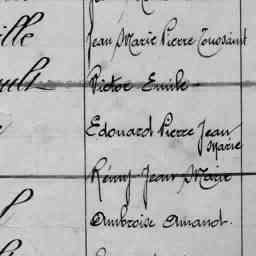 ille
Jean Marie Pierre Toussaint
Victor Emile
Edouard Pierre Jean
Marie
Rémy Jean Marie
Ambroise Amand.